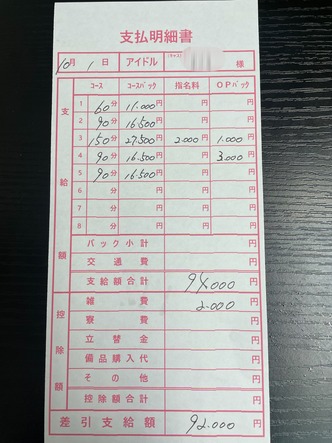 支払明細書
10月 1日 アイドル (キャスト) 様
支給額
コース コースバック 指名料 OPバック
1 60分 11.000円 円 円
2 90分 16.500円 円 円
3 150分 27.500円 2.000円 1.000円
4 90分 16.500円 円 3.000円
5 90分 16.500円 円 円
6 分 円 円 円
7 分 円 円 円
8 分 円 円 円
バック小計 円
交通費 円
支給額合計 94.000円
控除額
雑費 2.000円
寮費 円
立替金 円
備品購入代 円
その他 円
控除額合計 円
差引支給額 92.000円